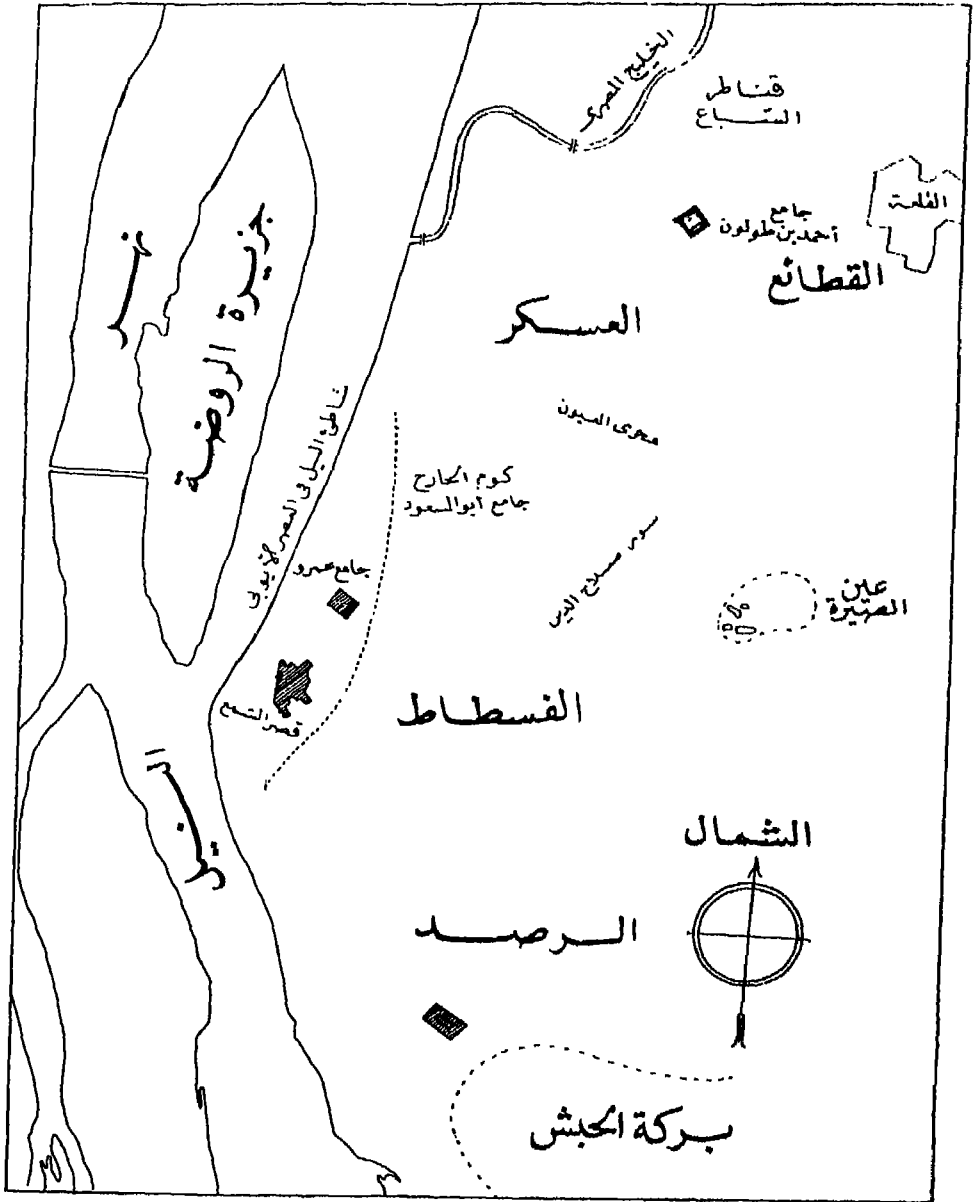 الخليج المصرى
قناطر
السباع
القلعة
جامع
أحمد بن طولون
القطائع
العسكر
نهر
جزيرة الروضة
شاطئ النيل فى العصر الأيوبى
مجرى العيون
كوم الجارح
جامع أبو السعود
سور صلاح الدين
جامع عمرو
عين
الصيرة
قصر الشمع
الفسطاط
النيل
الشمال
الرصد
بركة الحبش